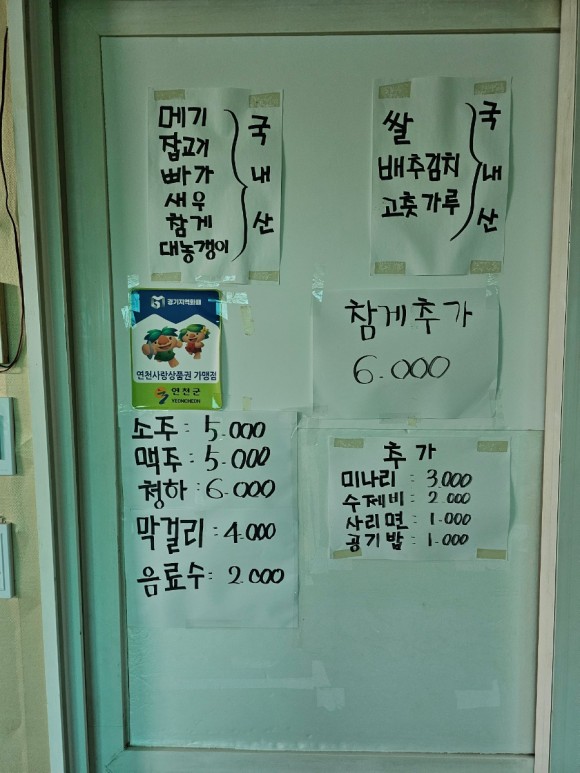 메기
잡고기
빠가
새우
참게
대농갱이
국내산
쌀
배추김치
고춧가루
국내산
경기지역화폐
연천사랑상품권 가맹점
연천군
YEONCHEON
참게추가
6.000
소주: 5.000
맥주: 5.000
청하: 6.000
막걸리: 4.000
음료수: 2.000
추가
미나리: 3.000
수제비: 2.000
사리면: 1.000
공기밥: 1.000